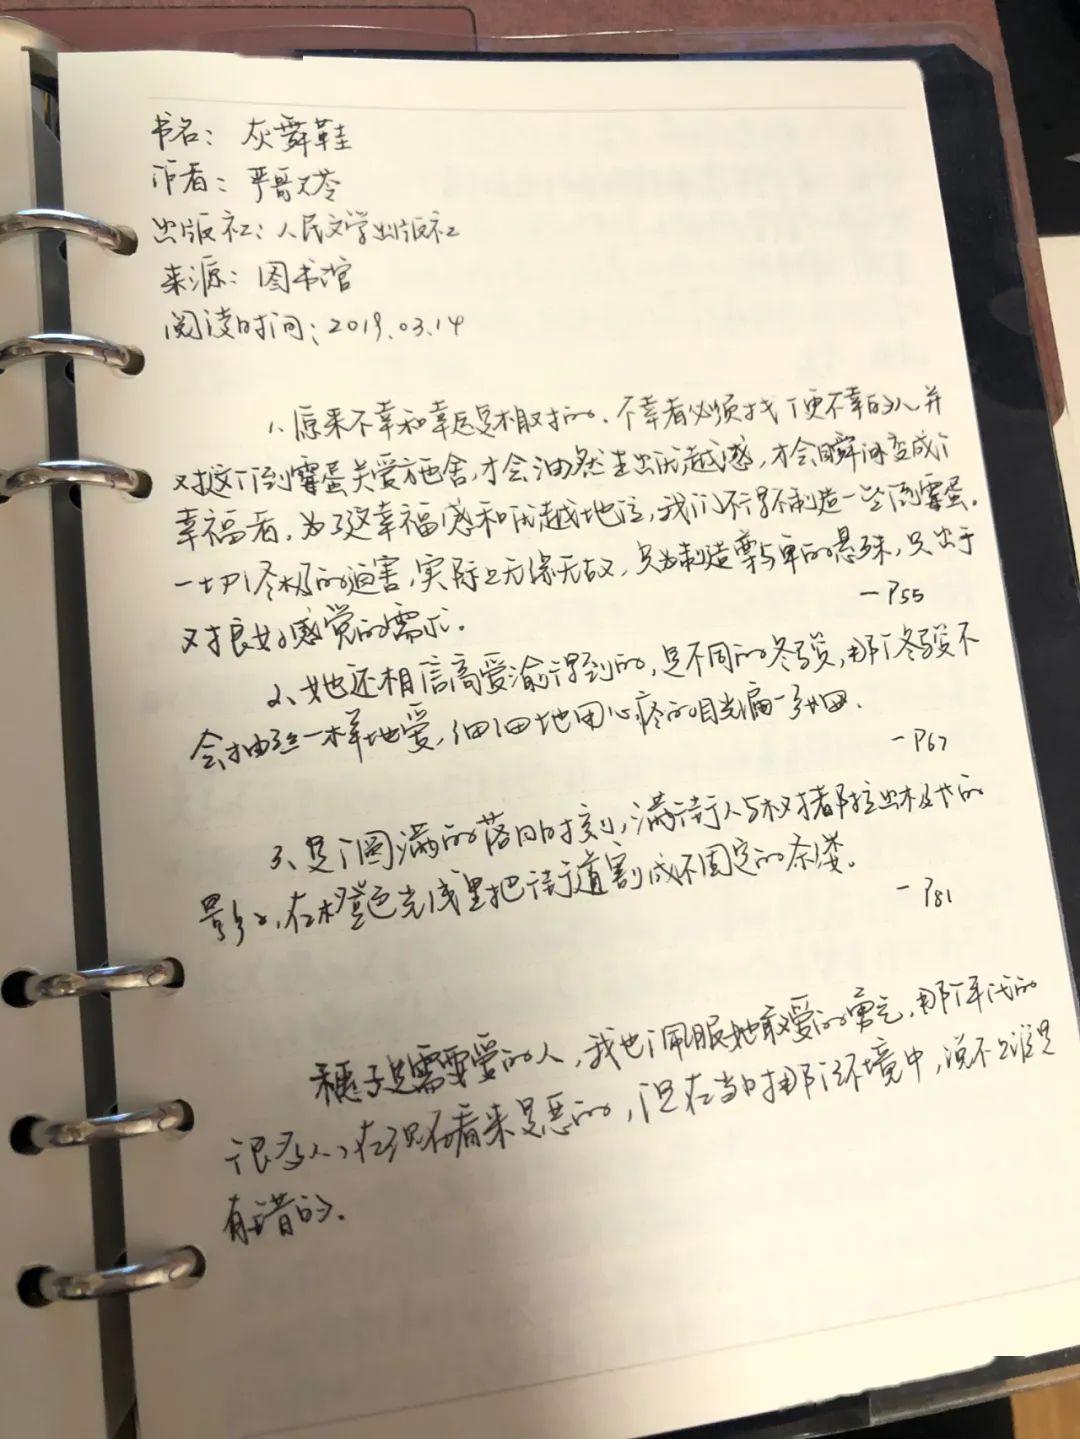 书名：灰舞鞋
作者：严歌苓
出版社：人民文学出版社
来源：图书馆
阅读时间：2019.03.14
1、原来不幸和幸运是相对的。不幸者必须找个更不幸的人并
对这个倒霉蛋关爱施舍，才会油然生出优越感，才会瞬间变成个
幸福者。为了这幸福感和优越地位，我们不得不制造一些倒霉蛋。
一切终极的迫害，实际上无缘无故，只为制造尊与卑的悬殊，只出于
对良好感觉的需求。
—P55
2、她还相信高爱渝得到的，是不同的冬骏，那个冬骏不
会抽丝一样地爱，细细地用心疼的目光编一张网。
—P67
3、是个圆满的落日时刻，满街人与权椏都拉出极长的
影子，在橙色光线里把街道割成不固定的条缕。
—P81
穗子是需要爱的人，我也佩服她敢爱的勇气，那个年代的
很多人，在现在看来是恶的，但在当时那个环境中，说不上谁是
有错的。